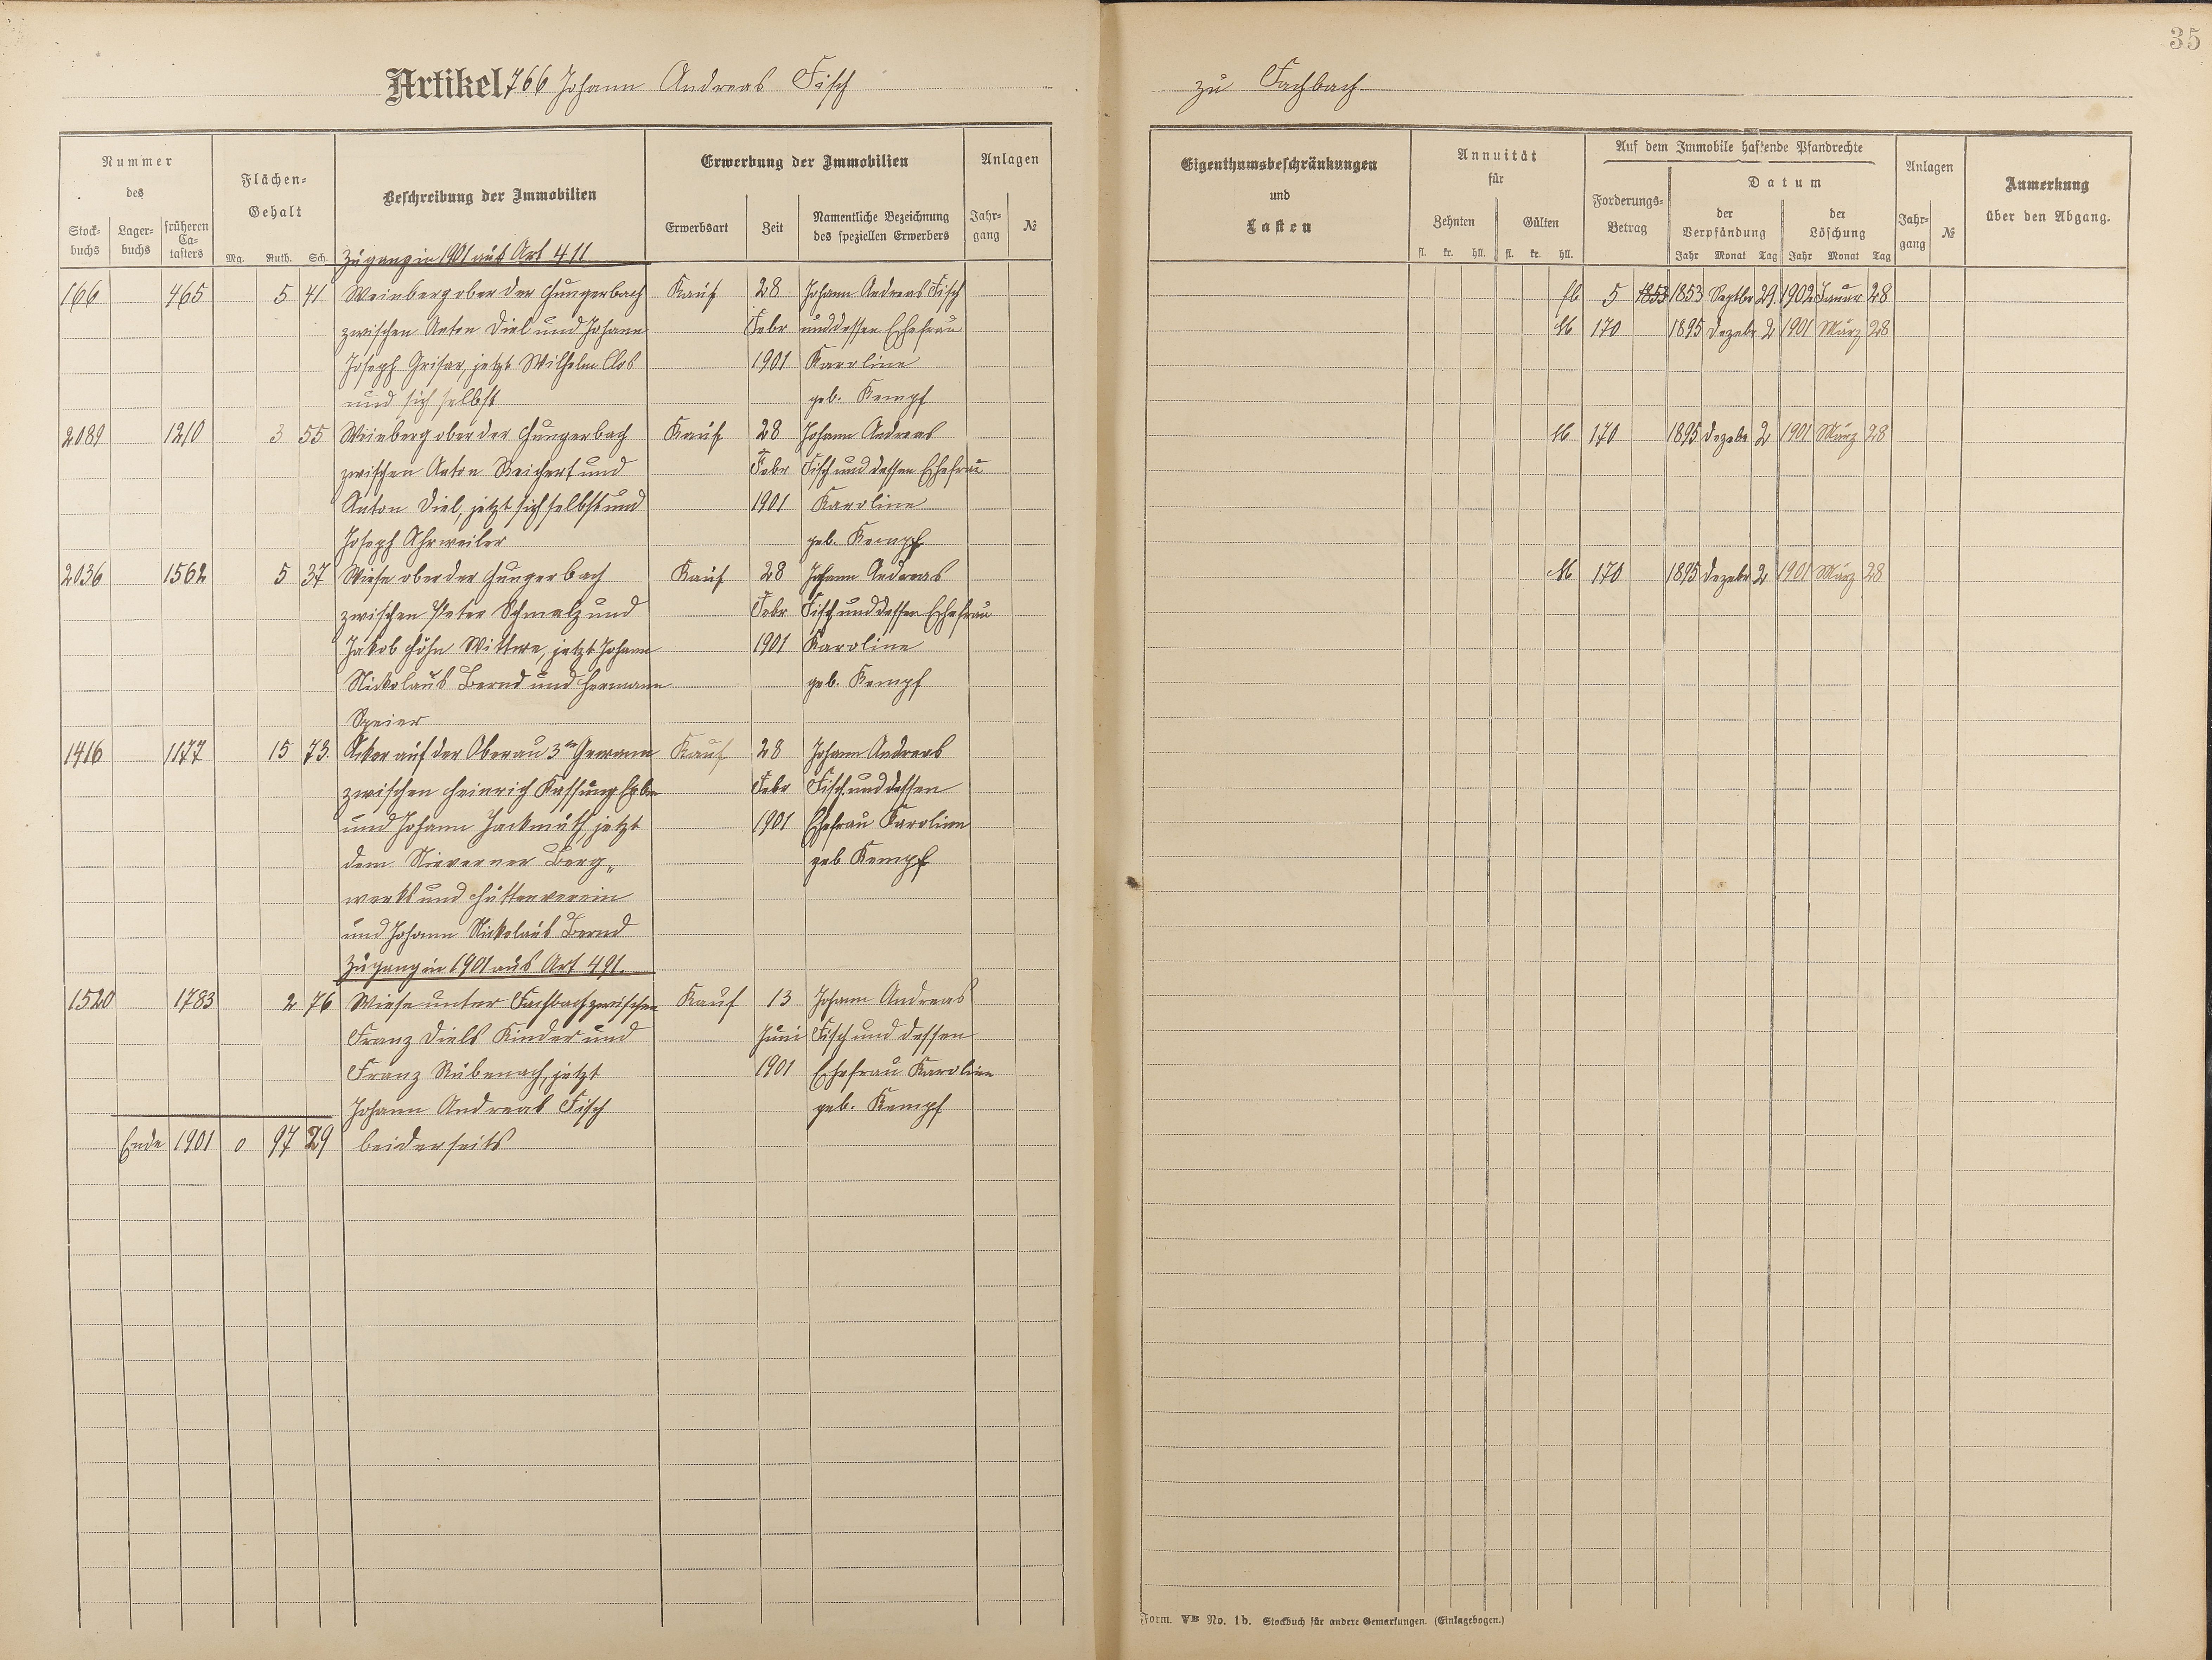 35
Artikel 766 Johann Andreas Fisch zu Fachbach
Nummer des
Stock-buchs Lager-buchs früheren Ca-tasters
Flächen-Gehalt
Mg. Ruth. Sch.
Beschreibung der Immobilien
Erwerbung der Immobilien
Erwerbsart Zeit Namentliche Bezeichnung des speziellen Erwerbers
Anlagen
Jahr-gang №
Eigenthumsbeschränkungen und Lasten
Annuität für
Zehnten Gülten
fl. kr. hll. fl. kr. hll.
Auf dem Immobile haftende Pfandrechte
Forderungs-Betrag
Datum
der Verpfändung der Löschung
Jahr Monat Tag Jahr Monat Tag
Anlagen
Jahr-gang №
Anmerkung über den Abgang.
Zugang in 1901 aus Art 411
166 465 5 41 Weinberg ober der Hungerbach Kauf 28 Johann Andreas Fisch fl 5 1853 1853 Septbr 29. 1902 Januar 28
zwischen Anton Diel und Johann Febr und dessen Ehefrau M 170 1895 Dezebr 2 1901 März 28
Joseph Grisar, jetzt Wilhelm Clos 1901 Karoline
und sich selbst geb. Kempf
2089 1210 3 55 Weinberg ober der Hungerbach Kauf 28 Johann Andreas M 170 1895 Dezebr 2 1901 März 28
zwischen Anton Reichert und Febr Fisch und dessen Ehefrau
Anton Diel, jetzt sich selbst und 1901 Karoline
Joseph Ahrweiler geb. Kempf
2036 1562 5 37 Wiese ober der Hungerbach Kauf 28 Johann Andreas M 170 1895 Dezebr 2 1901 März 28
zwischen Peter Schmalz und Febr Fisch und dessen Ehefrau
Jakob Höhn Wittwe, jetzt Johann 1901 Karoline
Nickolaus Bernd und Hermann geb. Kempf
Speier
1416 1177 15 73. Acker auf der Oberau 3te Gewann Kauf 28 Johann Andreas
zwischen Heinrich Kassung Erben Febr Fisch und dessen
und Johann Hackmuth, jetzt 1901 Ehefrau Karoline
dem Nieverner Berg„ geb Kempf
werks und Hüttenverein
und Johann Nickolaus Bernd
Zugang in 1901 aus Art 491.
1520 1783 2 76 Wiese unter Fachbach zwischen Kauf 13 Johann Andreas
Franz Diels Kinder und Juni Fisch und dessen
Franz Rübenach, jetzt 1901 Ehefrau Karoline
Johann Andreas Fisch geb. Kempf
Ende 1901 0 97 29 beiderseits
Form. VB No. 1b. Stockbuch für andere Gemarkungen. (Einlagebogen.)